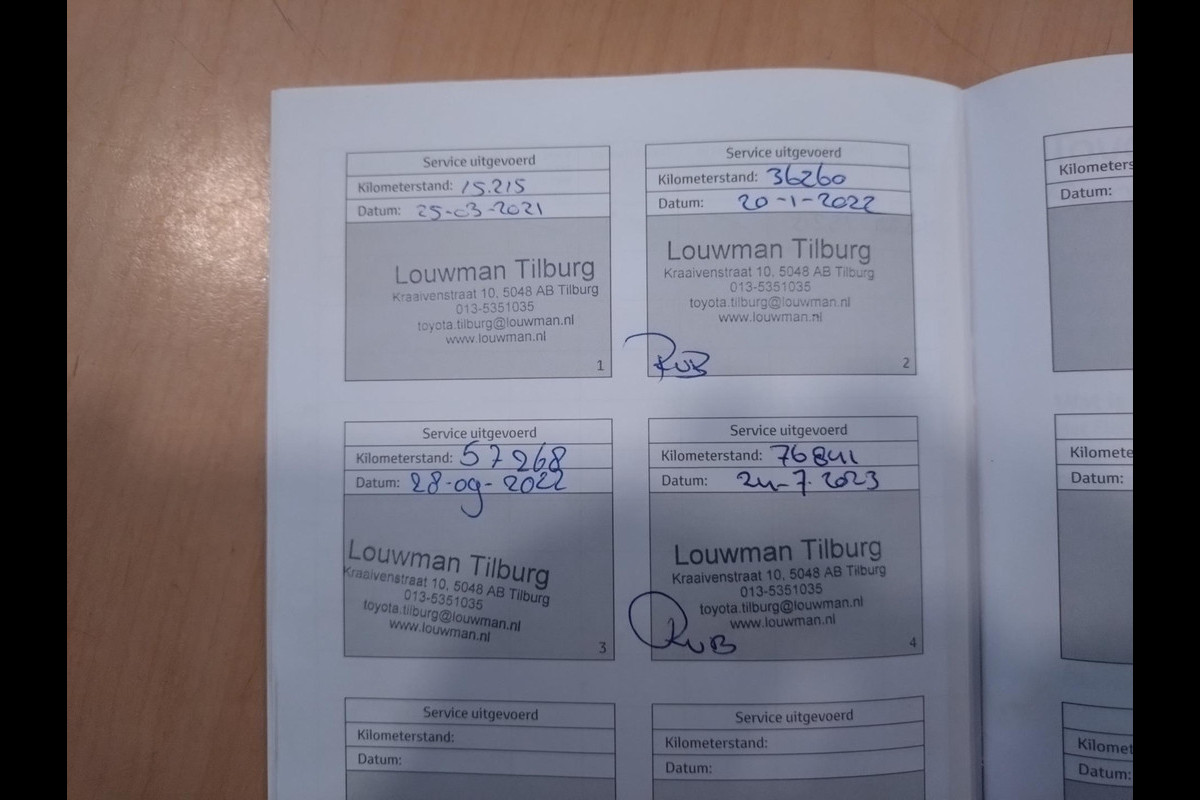 Service uitgevoerd
Kilometerstand: 15.215
Datum: 25-03-2021
Louwman Tilburg
Kraaivenstraat 10, 5048 AB Tilburg
013-5351035
toyota.tilburg@louwman.nl
www.louwman.nl
1
Service uitgevoerd
Kilometerstand: 36260
Datum: 20-1-2022
Louwman Tilburg
Kraaivenstraat 10, 5048 AB Tilburg
013-5351035
toyota.tilburg@louwman.nl
www.louwman.nl
RvB
2
Service uitgevoerd
Kilometerstand: 57268
Datum: 28-09-2022
Louwman Tilburg
Kraaivenstraat 10, 5048 AB Tilburg
013-5351035
toyota.tilburg@louwman.nl
www.louwman.nl
3
Service uitgevoerd
Kilometerstand: 76841
Datum: 24-7-2023
Louwman Tilburg
Kraaivenstraat 10, 5048 AB Tilburg
013-5351035
toyota.tilburg@louwman.nl
www.louwman.nl
RvB
4
Service uitgevoerd
Kilometerstand:
Datum:
Service uitgevoerd
Kilometerstand:
Datum:
Kilometers
Datum:
Kilomete
Datum:
Kilomet
Datum: